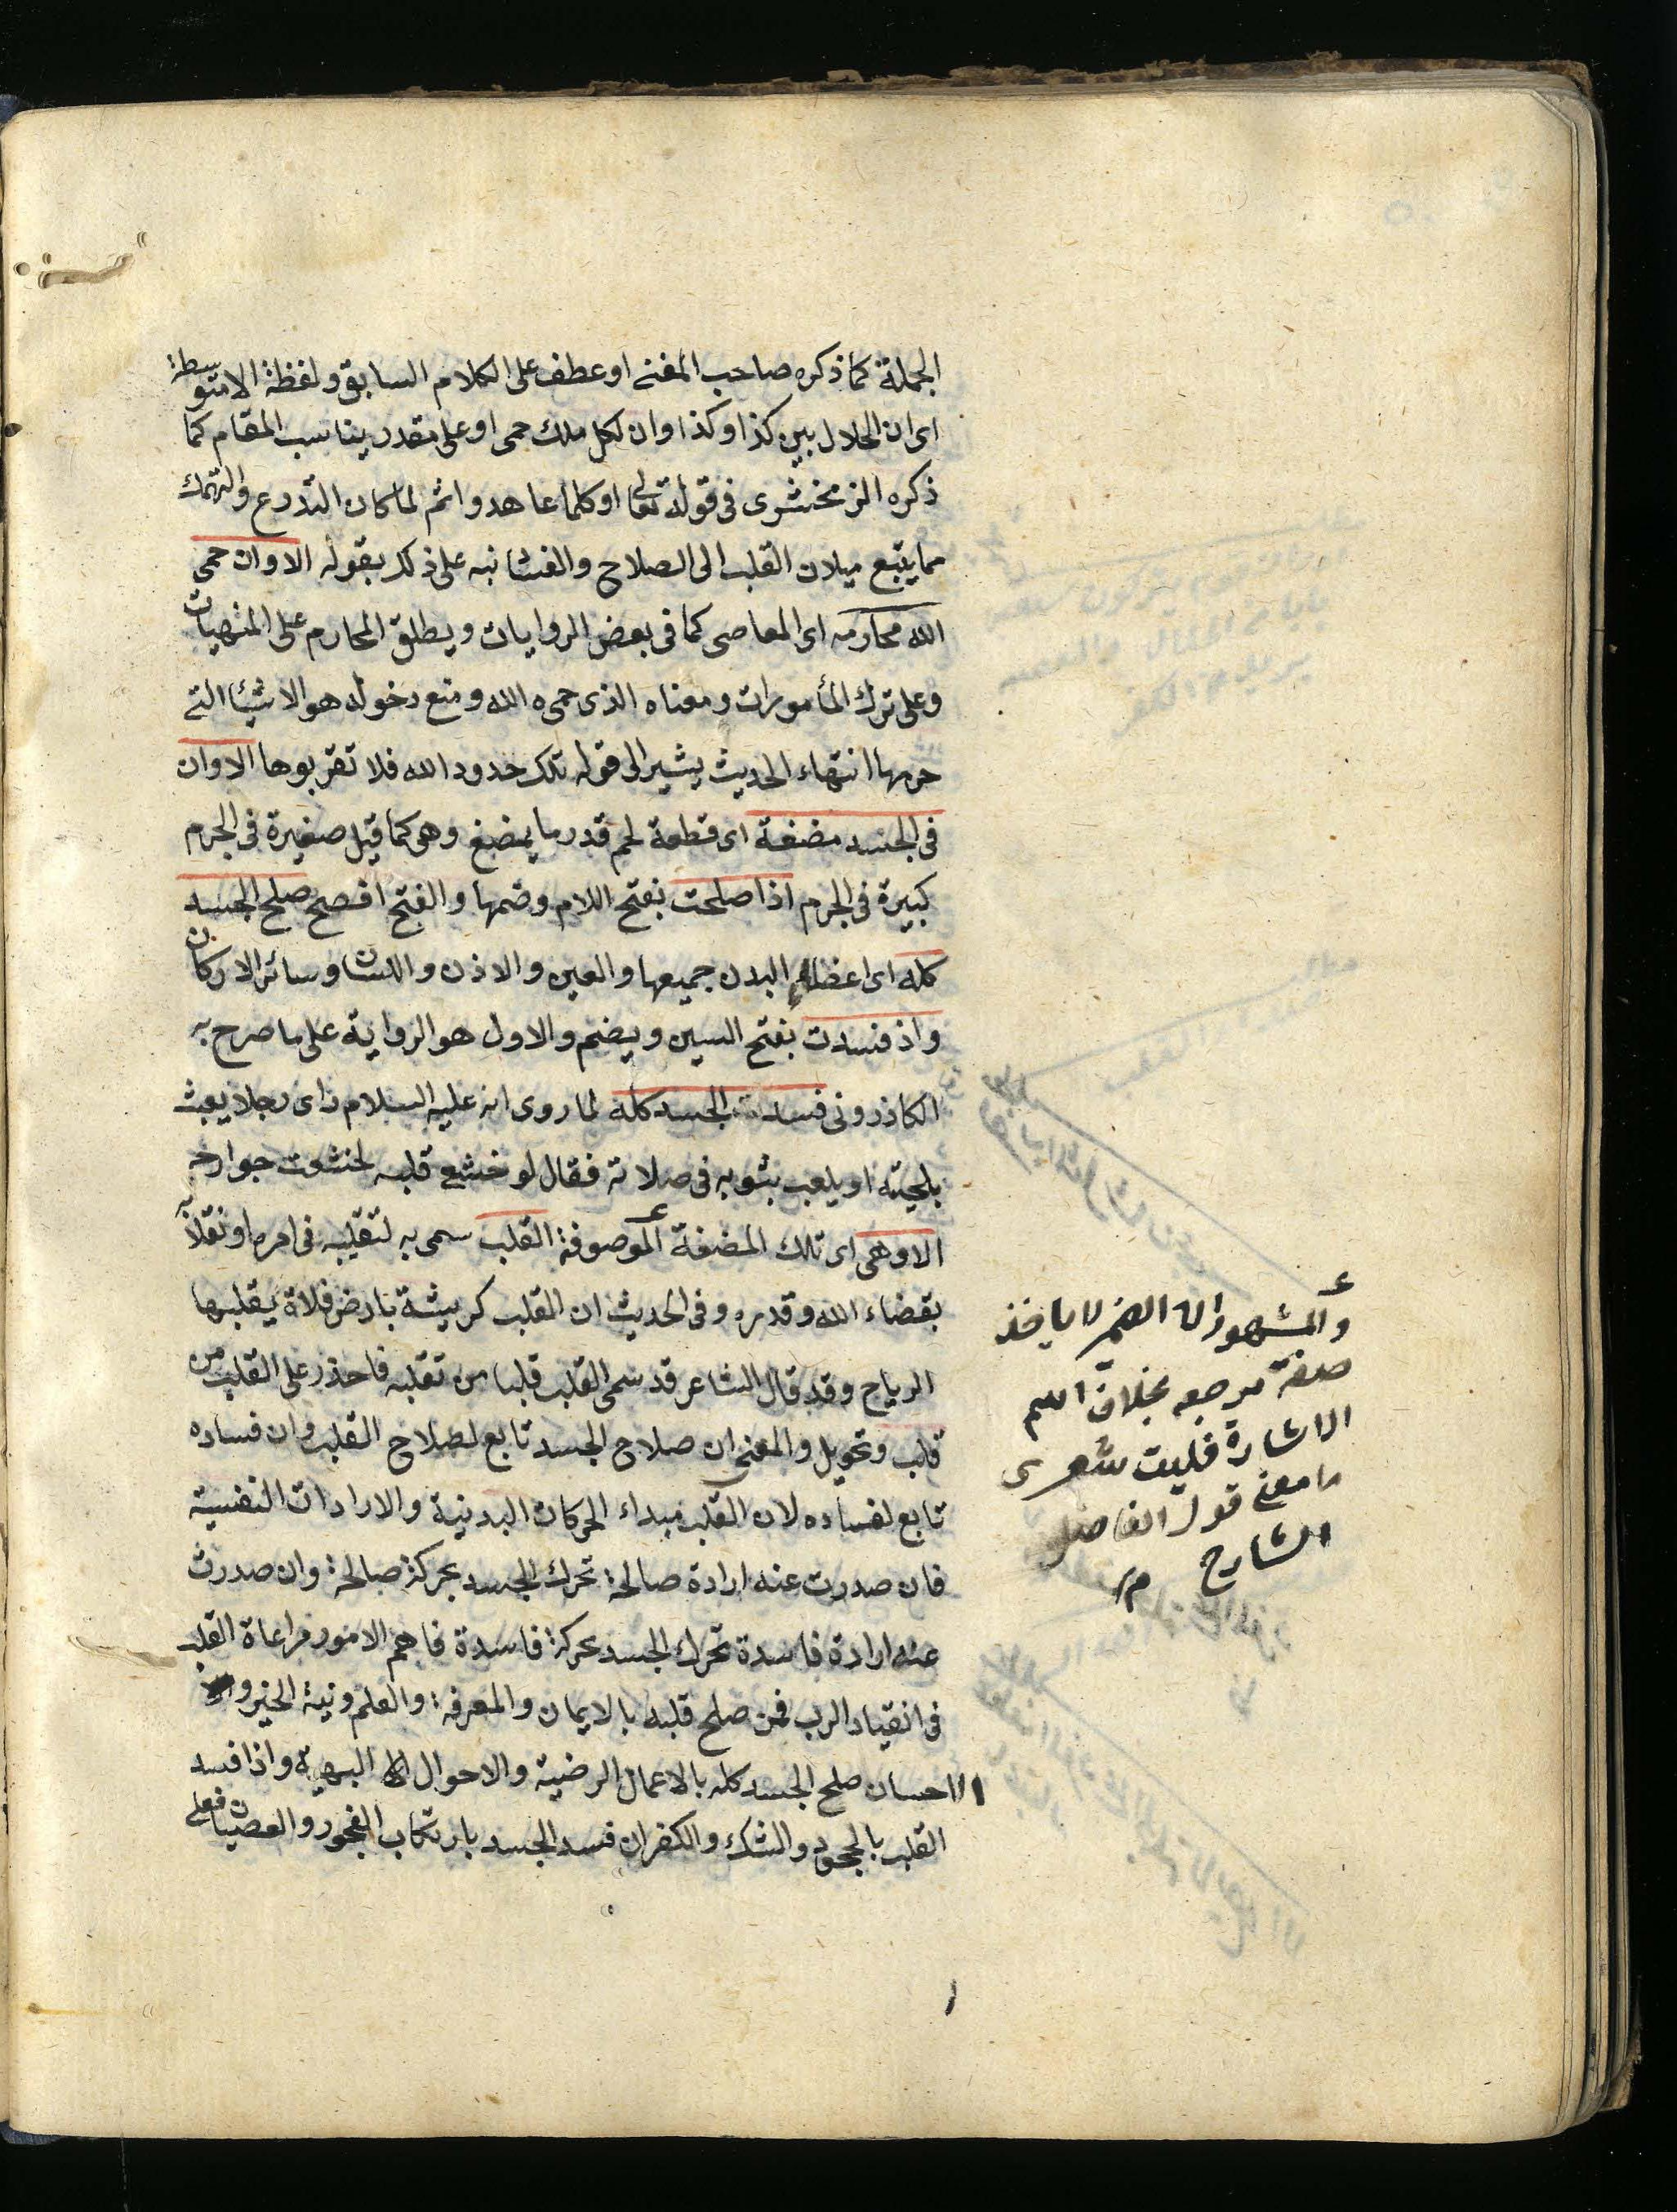 الجملة كما ذكره صاحب المغنے او عطف على الكلام السابق ولفظة الا متوسطة
اى ان الحلال بين كذا وكذا وان لكل ملك حمى او على مقدر يناسب المقام كما
ذكره الزمخشرى فى قوله تعالى او كلما عاهدوا ثم لما كان التورع والتهتك
مما يتبع ميلان القلب الى الصلاح والفسا نبه على ذلك بقوله الا وان حمى
الله محارمه اى المعاصى كما فى بعض الروايات ويطلق المحارم على المنهيات
وعلى ترك المأمورات ومعناه الذى حمىه الله ومنع دخوله هو الاشيا التے
حرمها انتهاء الحديث يشير الى قوله تلك حدود الله فلا تقربوها الا وان
فى الجسد مضغة اى قطعة لحم قدر ما يمضغ وهى كما قيل صغيرة فى الجرم
كبيرة فى الجرم اذا صلحت بفتح اللام وضمها والفتح افصح صلح الجسد
كله اى اعضاء البدن جميعها والعين والاذن واللسان وسائر الاركان
واذ فسدت بفتح السين ويضم والاول هو الرواية على ما صرح به
الكاذرونى فسدت الجسد كله لما روى انه عليه السلام رأى رجلا يعبث
بلحيته او يلعب بثوبه فى صلاته فقال لو خشع قلبه لخشعت جوارحه
الا وهى اى تلك المضغة الموصوفة القلب سمى به لتقلبه فى امره او تقلابه
بقضاء الله وقدره وفى الحديث ان القلب كريشة بارض فلاة يقلبها
الرياح وقد قال الشاعر قد سمى القلب قلبا من تقلبه فاحذر على القلب من
قلب وتحويل والمعنى ان صلاح الجسد تابع لصلاح القلب وان فساده
تابع لفساده لان القلب مبداء الحركات البدنية والارادات النفسية
فان صدرت عنه ارادة صالحة تحرك الجسد بحركة صالحة وان صدرت
عنه ارادة فاسدة تحرك الجسد بحركة فاسدة فاهم الامور مراعاة القلب
فى انقياد الرب فمن صلح قلبه بالايمان والمعرفة والعلم ونية الخير و
الاحسان صلح الجسد كله بالاعمال الرضية والاحوال البهية واذا فسد
القلب بالجحود والشك والكفران فسد الجسد بارتكاب الفجور والعصيان فعلى
والمشهور ان الضمير لا ياخذ
صفة مرجعه بخلاف اسم
الاشارة فليت شعرى
ما معنے قول الفاضل
الشارح م